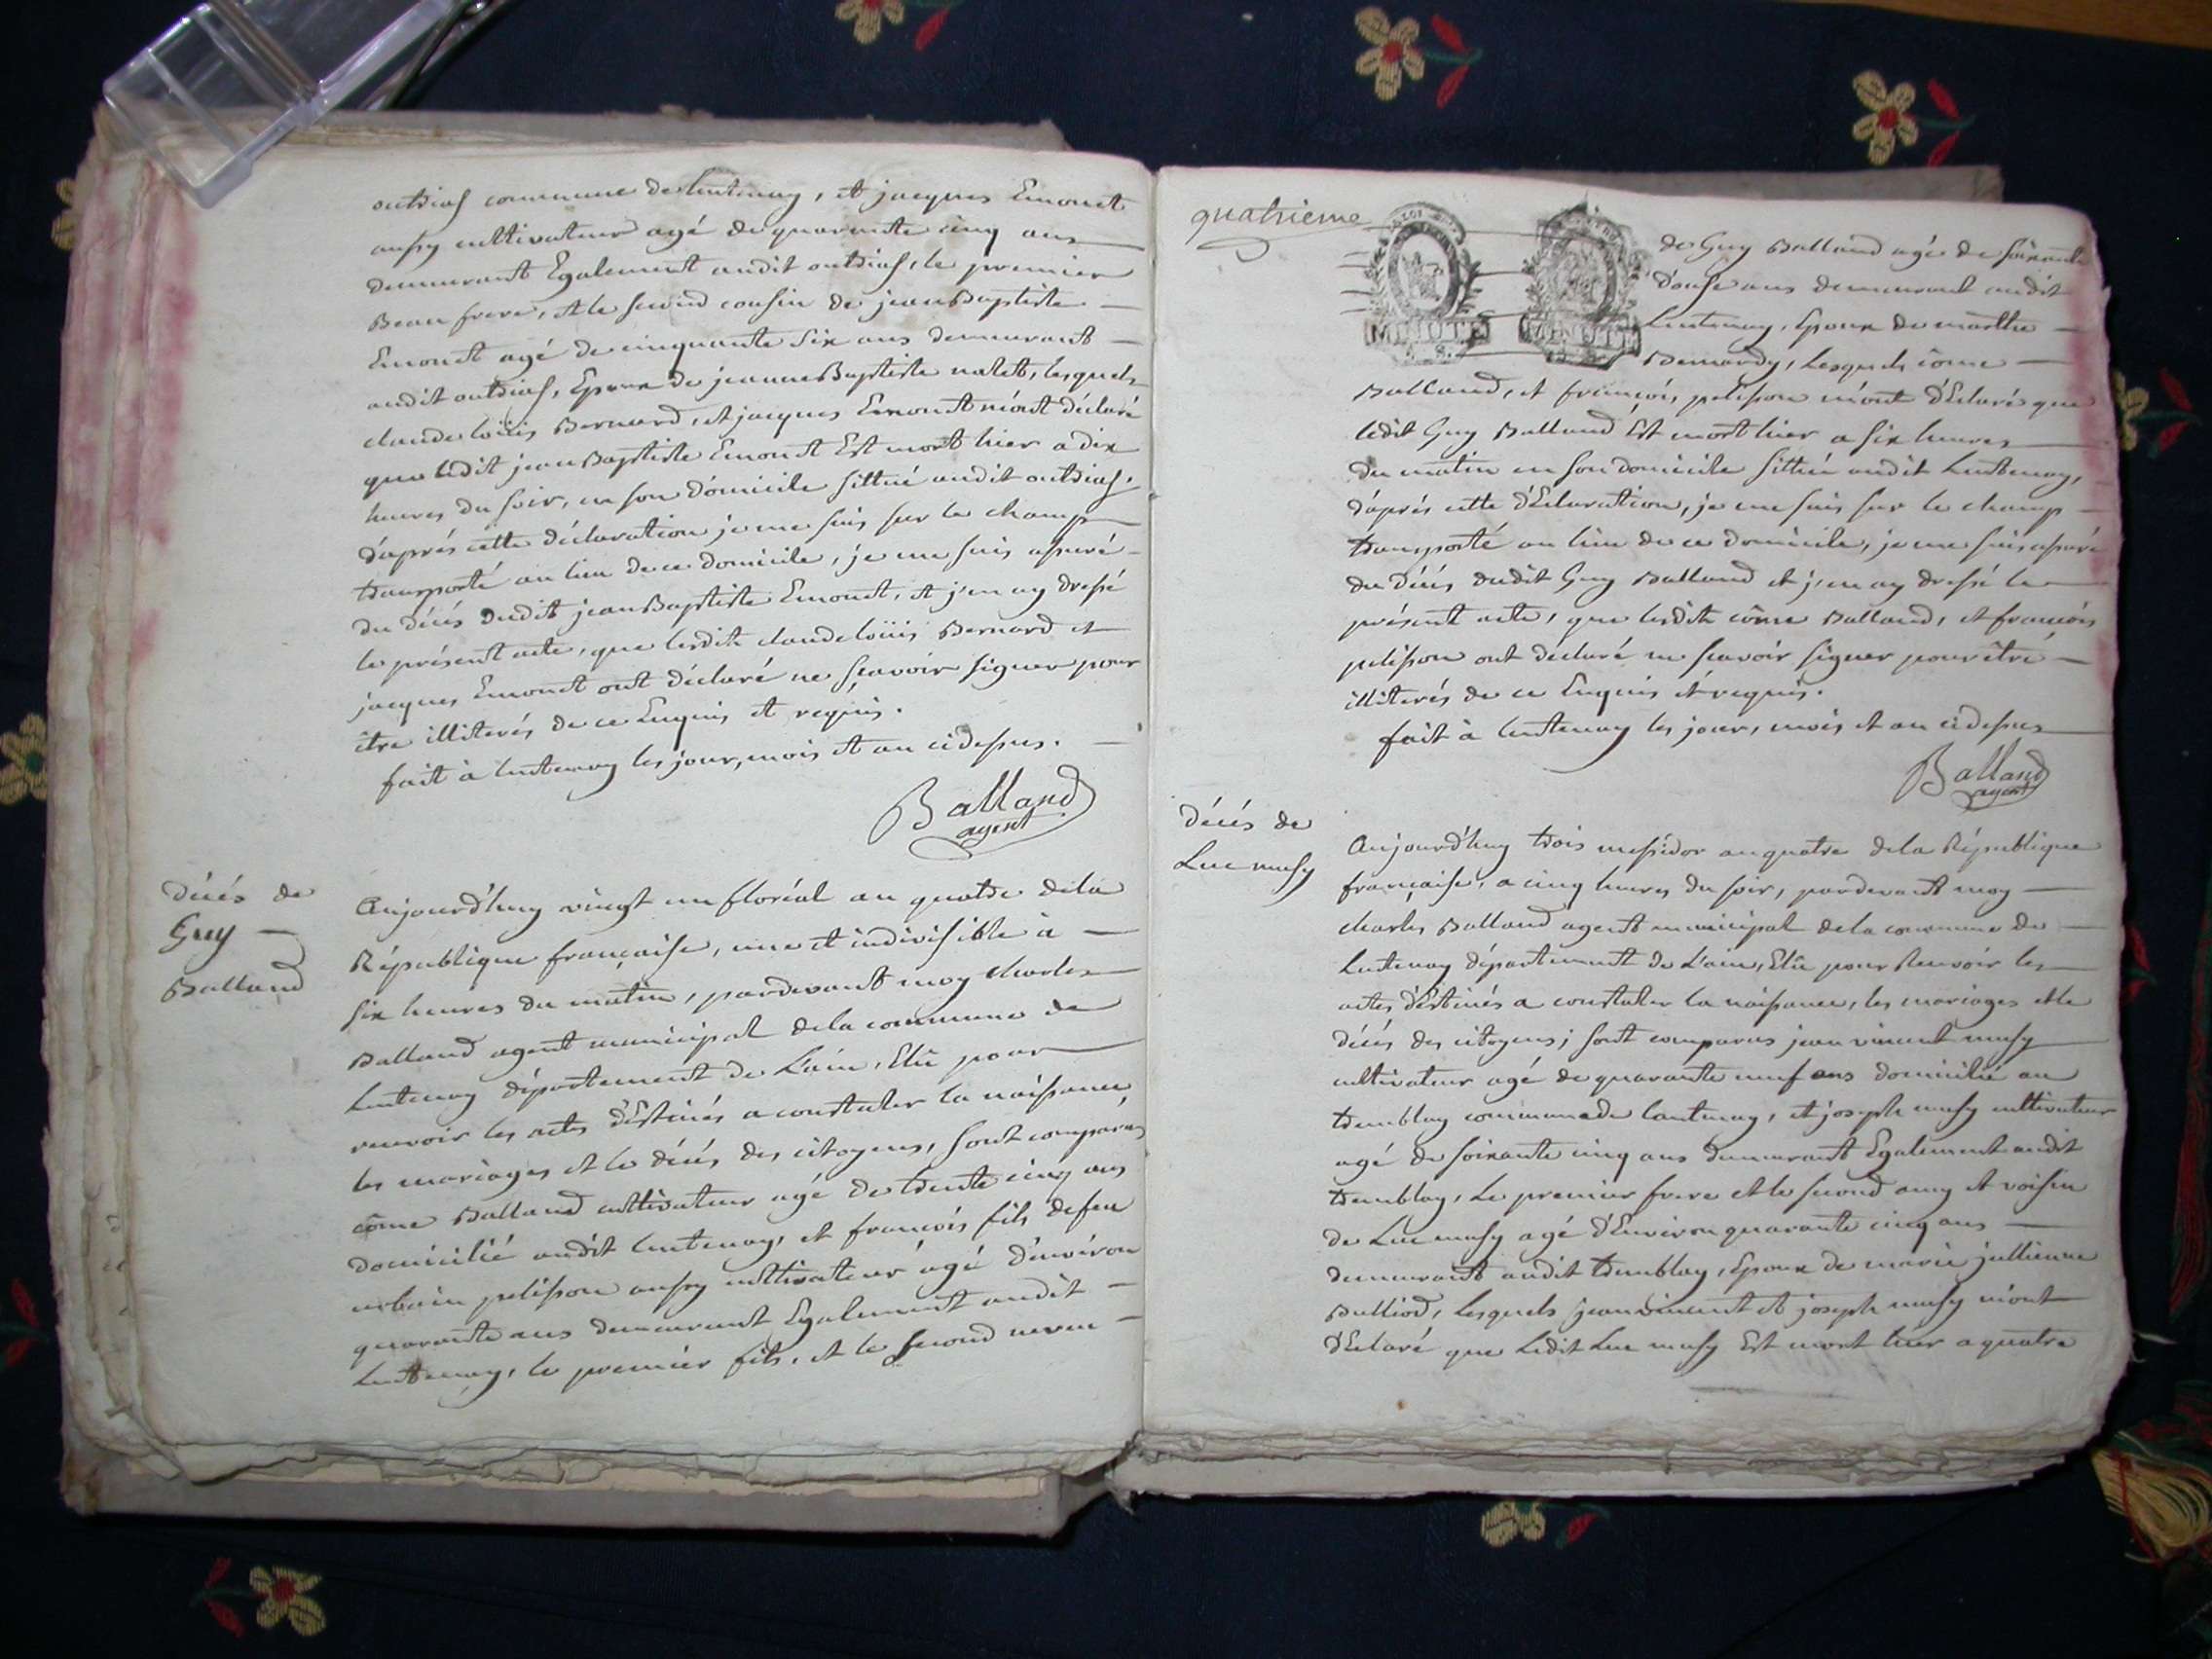 outriaf commune de lentenay, et jacques Emonet
aussy cultivateur agé de quarante cinq ans
demeurant Egalement audit outriaf, le premier
Beau frere, et le second cousin de jean Baptiste
Emonet agé de cinquante six ans demeurant
audit outriaf, Epoux de jeanne Baptiste nalet, lesquels
claude loüis Bernard, et jacques Emonet m'ont déclaré
que ledit jean Baptiste Emonet Est mort hier a dix
heures du soir, en son domicile sittué audit outriaf,
d'aprés cette déclaration je me suis sur le champ
transporté au lieu de ce domicile, je me suis assuré
du décés dudit jean Baptiste Emonet, et j'en ay dressé
le présent acte, que lesdits claude loüis Bernard et
jacques Emonet ont déclaré ne sçavoir signer pour
être illiterés de ce Enquis et requis.
fait à lentenay les jour, mois et an cidessus.
Balland
agent
décés de
Guy
Balland
Aujourd'huy vingt un floréal an quatre dela
République française, une et indivisible à
six heures du matin, pardevant moy charles
Balland agent municipal dela commune de
Lentenay département de L'ain, Elû pour
recevoir les actes d'Estinés a constater la naissance,
les mariages et le décés des citoyens, sont comparus
côme Balland cultivateur agé de trente cinq ans
domicilié audit lentenay, et françois fils defeu
urbain pelisson aussy cultivateur agé d'environ
quarante ans demeurant Egalement audit
Lentenay, le premier fils, et le second neveu
quatrieme
MINUTE
MINUTE
de Guy Balland agé de soixante
douse ans demeurant audit
Lentenay, Epoux de marthe
Bernardy, Lesquels côme
Balland, et françois pelisson m'ont d'Eclaré que
ledit Guy Balland Est mort hier a six heures
du matin en son domicile sittué audit Lentenay,
d'aprés cette d'Eclaration, je me suis sur le champ
transporté au lieu de ce domicile, je me suis assuré
du décés dudit Guy Balland et j'en ay dressé le
présent acte, que lesdits côme Balland, et françois
pelisson ont déclaré ne scavoir signer pour être
illiterés de ce Enquis et requis.
fait à lentenay les jour, mois et an cidessus
Balland
agent
décés de
Luc musy
Aujourd'huy trois messidor an quatre dela République
française, a cinq heures du soir, pardevant moy
charles Balland agent municipal dela commune de
Lentenay département de L'ain, Elû pour Recevoir les
actes d'Estinés a constater la naissance, les mariages et le
décés des citoyens; sont comparus jean vincent musy
cultivateur agé de quarante neuf ans domicilié au
tremblay commune de lantenay, et joseph musy cultivateur
agé de soixante cinq ans demeurant Egalement audit
tremblay, Le premier frere et le second amy et voisin
de Luc musy agé d'Environ quarante cinq ans
demeurant audit tremblay, Epoux de marie jullienne
Balliod, Lesquels jean vincent et joseph musy m'ont
d'Eclaré que Ledit Luc musy Est mort hier a quatre